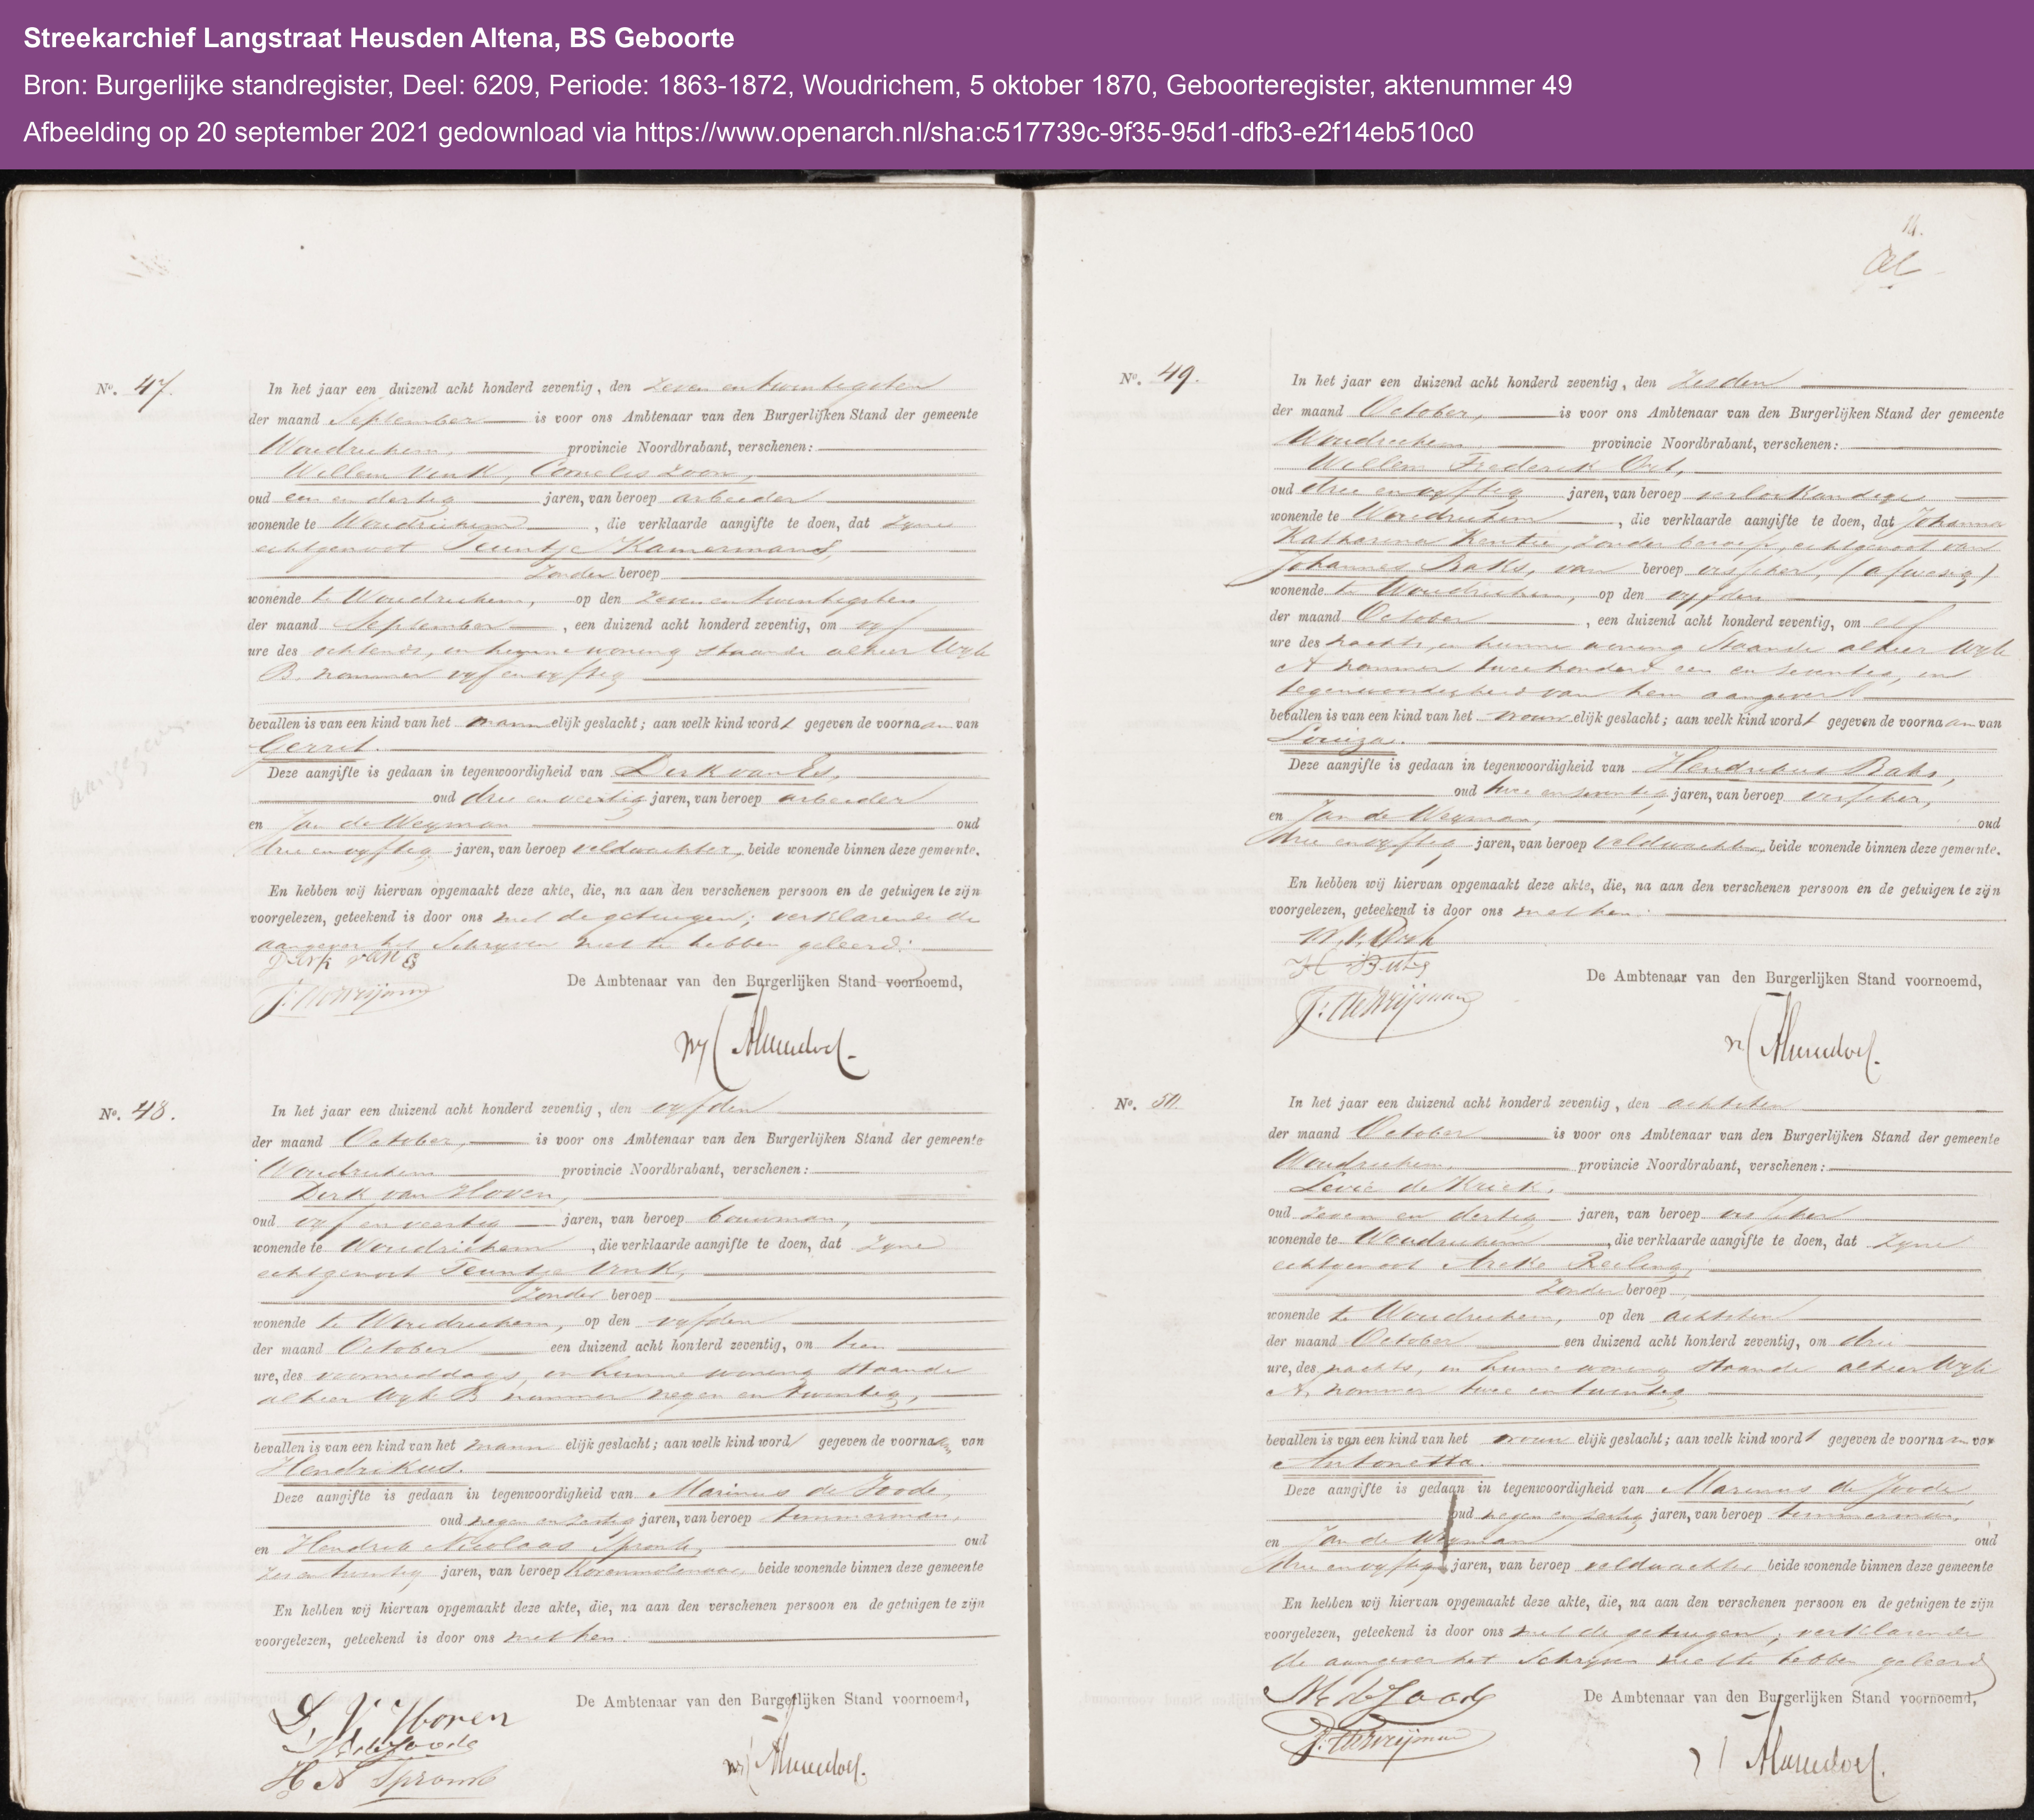 Streekarchief Langstraat Heusden Altena, BS Geboorte
Bron: Burgerlijke standregister, Deel: 6209, Periode: 1863-1872, Woudrichem, 5 oktober 1870, Geboorteregister, aktenummer 49
Afbeelding op 20 september 2021 gedownload via https://www.openarch.nl/sha:c517739c-9f35-95d1-dfb3-e2f14eb510c0
No. 47.
In het jaar een duizend acht honderd zeventig, den zeven en twintigsten
der maand September is voor ons Ambtenaar van den Burgerlijken Stand der gemeente
Woudrichem, provincie Noordbrabant, verschenen:
Willem Vink, Cornelis Zoon,
oud een en dertig jaren, van beroep arbeider
wonende te Woudrichem, die verklaarde aangifte te doen, dat zyne
echtgenoot Teuntje Kamermans,
zonder beroep
wonende te Woudrichem, op den zeven en twintigsten
der maand September, een duizend acht honderd zeventig, om vyf
ure des ochtends, in hunne woning staande alhier Wyk
B. nommer vyf en vyftig
bevallen is van een kind van het mannelijk geslacht; aan welk kind wordt gegeven de voornaam van
Gerrit.
Deze aangifte is gedaan in tegenwoordigheid van Dirk van Es,
oud drie en veertig jaren, van beroep arbeider
en Jan de Weyman oud
drie en vyftig jaren, van beroep veldwachter, beide wonende binnen deze gemeente.
En hebben wij hiervan opgemaakt deze akte, die, na aan den verschenen persoon en de getuigen te zijn
voorgelezen, geteekend is door ons met de getuigen; verklarende de
aangever het Schryven niet te hebben geleerd.
Dirk van Es
De Ambtenaar van den Burgerlijken Stand voornoemd,
No. 48.
In het jaar een duizend acht honderd zeventig, den vyfden
der maand October, is voor ons Ambtenaar van den Burgerlijken Stand der gemeente
Woudrichem provincie Noordbrabant, verschenen:
Dirk van Hoven,
oud vyf en veertig jaren, van beroep bouwman,
wonende te Woudrichem, die verklaarde aangifte te doen, dat zyne
echtgenoot Teuntje Vink,
zonder beroep
wonende te Woudrichem, op den vyfden
der maand October een duizend acht honderd zeventig, om tien
ure, des voormiddags, in hunne woning staande
alhier Wyk B nommer negen en twintig,
bevallen is van een kind van het mannelijk geslacht; aan welk kind word gegeven de voornaam van
Hendrikus.
Deze aangifte is gedaan in tegenwoordigheid van Marinus de Joode,
oud negen en zestig jaren, van beroep timmerman,
en Hendrik Nicolaas Spronk, oud
zes en twintig jaren, van beroep Korenmolenaar, beide wonende binnen deze gemeente
En hebben wij hiervan opgemaakt deze akte, die, na aan den verschenen persoon en de getuigen te zijn
voorgelezen, geteekend is door ons met hen.
De Ambtenaar van den Burgerlijken Stand voornoemd,
D. V. Hoven
M de Joode
H N Spronk
14.
No. 49.
In het jaar een duizend acht honderd zeventig, den zesden
der maand October, is voor ons Ambtenaar van den Burgerlijken Stand der gemeente
Woudrichem provincie Noordbrabant, verschenen:
Willem Frederik
oud drie en vyftig jaren, van beroep verloskundige
wonende te Woudrichem, die verklaarde aangifte te doen, dat Johanna
Katharina Kentie, zonder beroep, echtgenoot van
Johannes Baks, van beroep visscher, (afwezig)
wonende te Woudrichem, op den vyfden
der maand October, een duizend acht honderd zeventig, om elf
ure des nachts, in hunne woning staande alhier Wyk
A nommer twee honderd een en zeventig, in
tegenwoordigheid van hem aangever
bevallen is van een kind van het vrouwelijk geslacht; aan welk kind wordt gegeven de voornaam van
Louiza.
Deze aangifte is gedaan in tegenwoordigheid van Hendrikus Baks,
oud twee en zeventig jaren, van beroep visscher,
en Jan de Weyman, oud
drie en vyftig jaren, van beroep veldwachter, beide wonende binnen deze gemeente.
En hebben wij hiervan opgemaakt deze akte, die, na aan den verschenen persoon en de getuigen te zijn
voorgelezen, geteekend is door ons met hen.
De Ambtenaar van den Burgerlijken Stand voornoemd,
No. 50.
In het jaar een duizend acht honderd zeventig, den achtsten
der maand October is voor ons Ambtenaar van den Burgerlijken Stand der gemeente
Woudrichem, provincie Noordbrabant, verschenen:
Levie de Kriek,
oud zeven en dertig jaren, van beroep visscher
wonende te Woudrichem, die verklaarde aangifte te doen, dat zyne
echtgenoot Reeling,
zonder beroep
wonende te Woudrichem, op den achtsten
der maand October een duizend acht honderd zeventig, om drie
ure, des nachts, in hunne woning staande alhier Wyk
A, nommer twee en twintig
bevallen is van een kind van het vrouwelijk geslacht; aan welk kind wordt gegeven de voornaam van
Antonetta.
Deze aangifte is gedaan in tegenwoordigheid van Marinus de Joode,
oud negen en zestig jaren, van beroep timmerman,
en Jan de Weyman oud
drie en vyftig jaren, van beroep veldwachter beide wonende binnen deze gemeente
En hebben wij hiervan opgemaakt deze akte, die, na aan den verschenen persoon en de getuigen te zijn
voorgelezen, geteekend is door ons met de getuigen, verklarende
de aangever het Schryven niet te hebben geleerd
M de Joode
De Ambtenaar van den Burgerlijken Stand voornoemd,